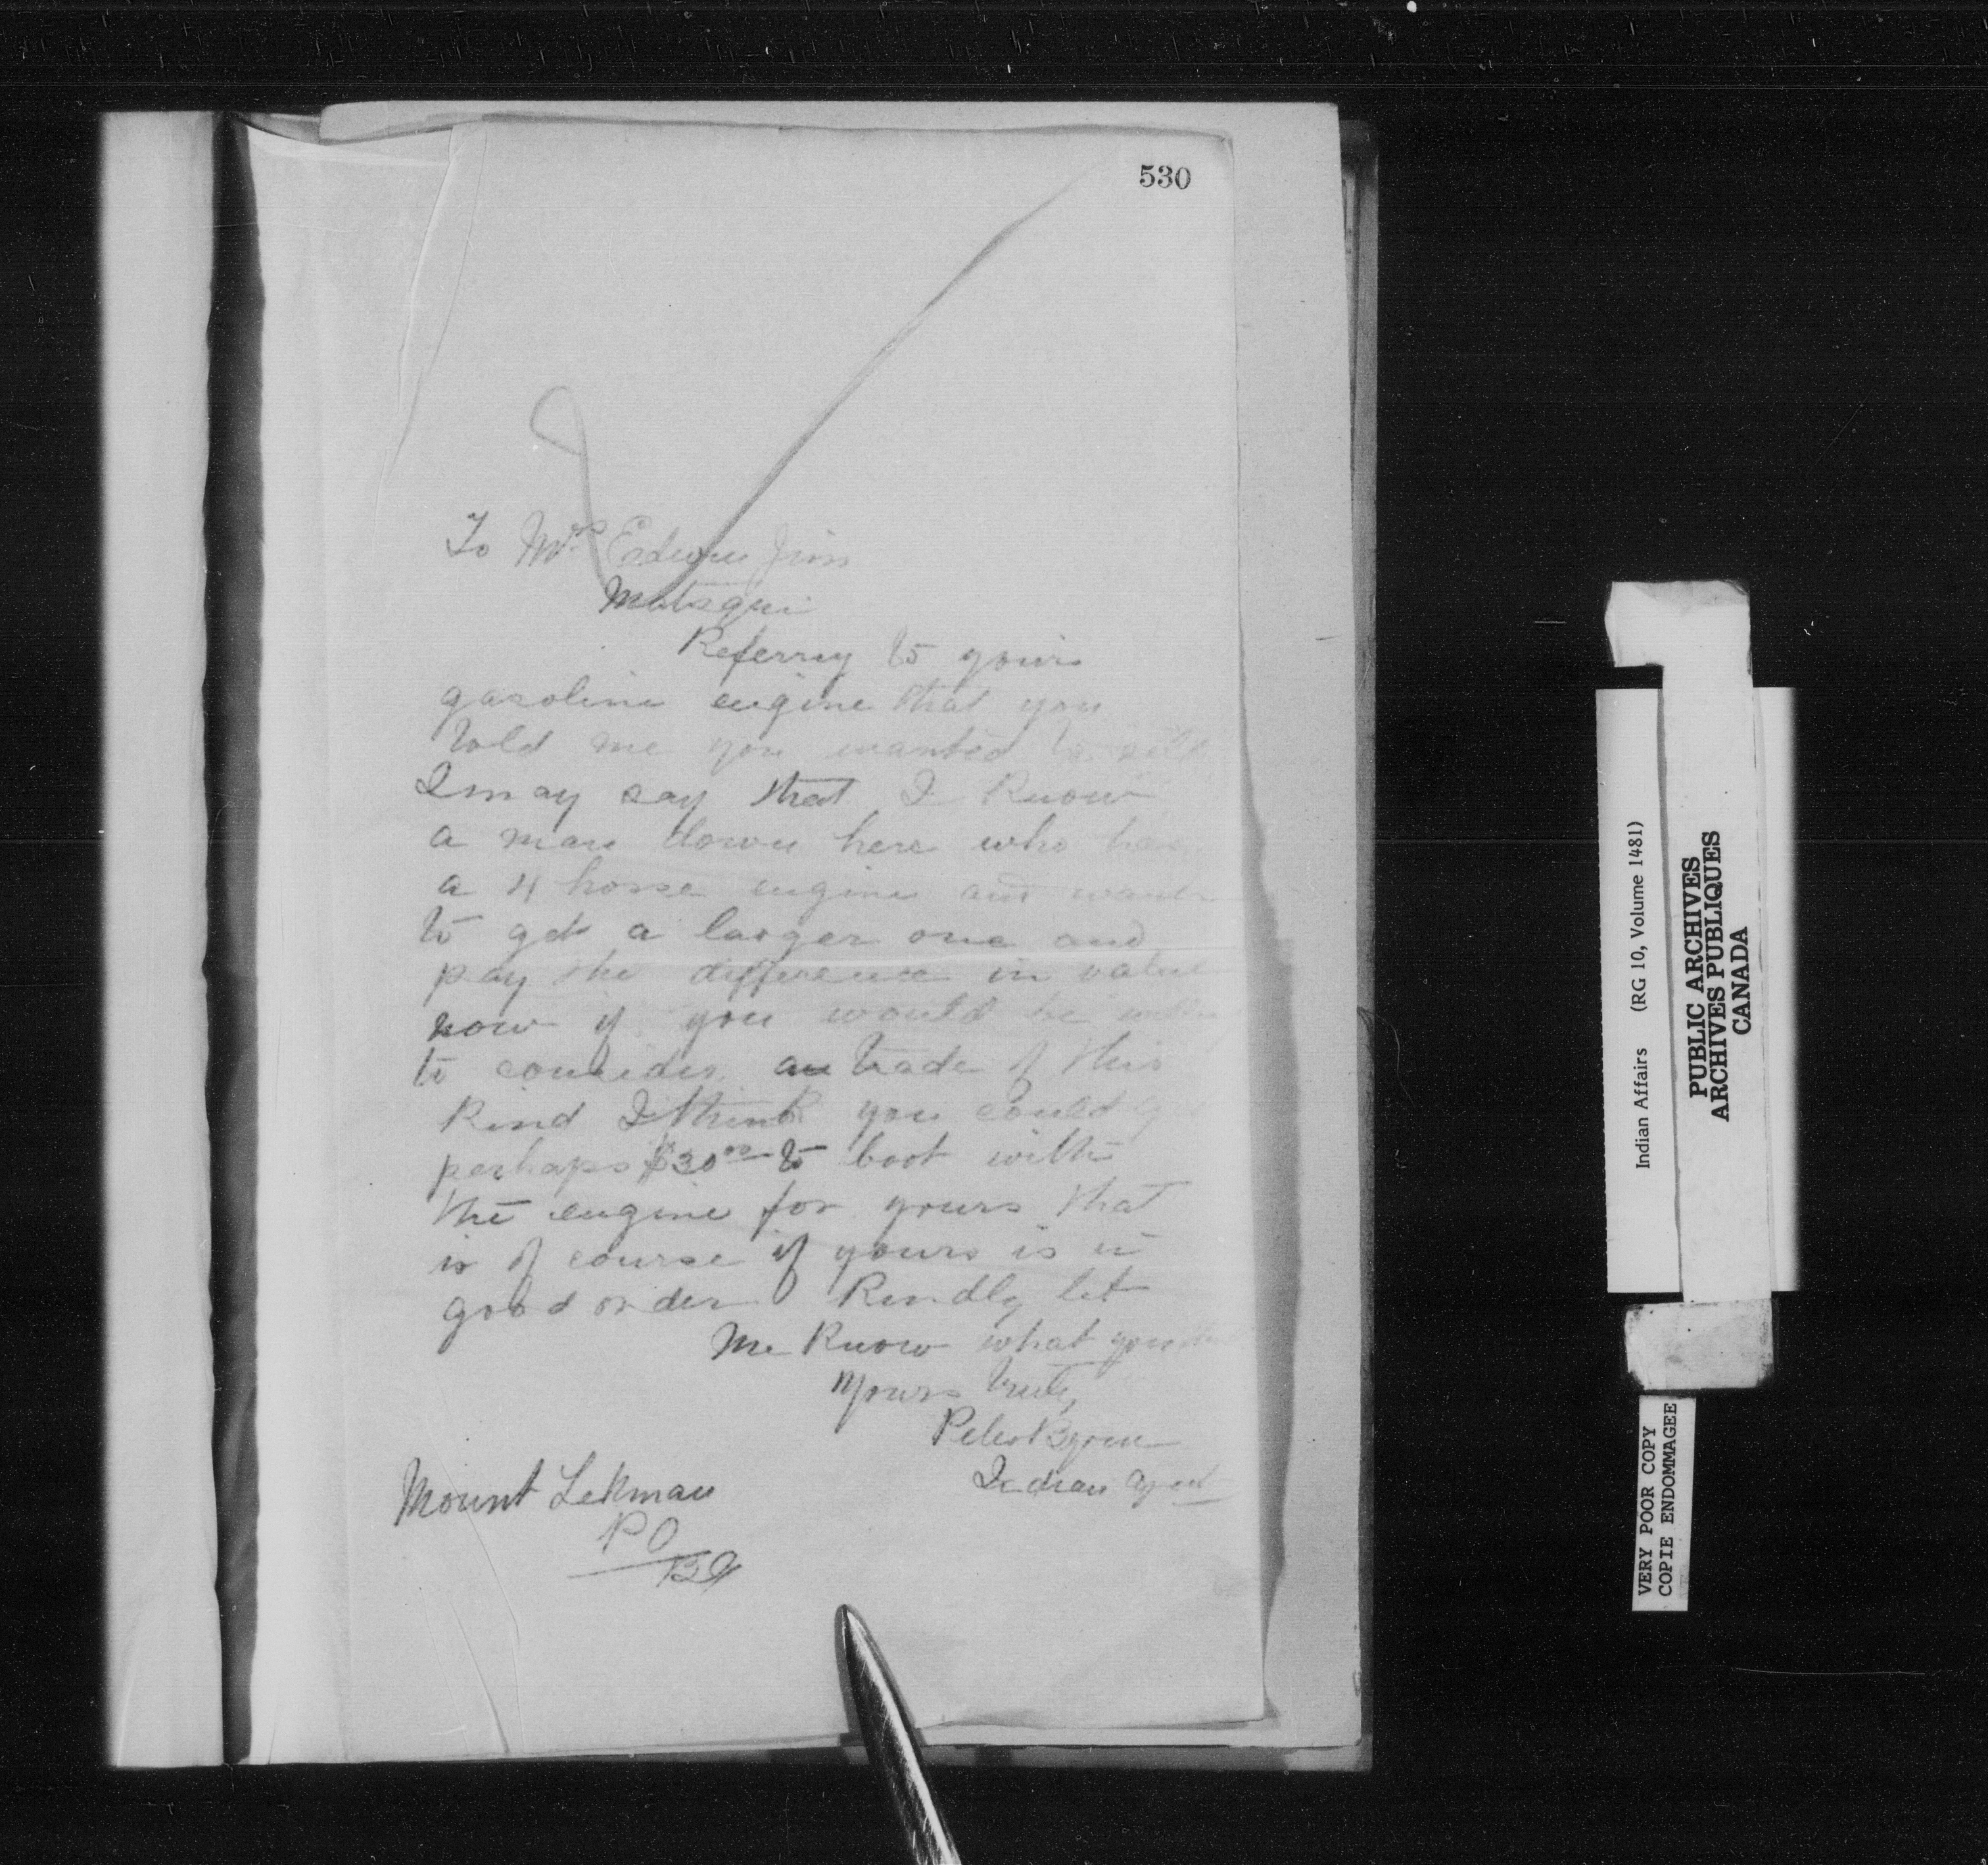 530
To Mrs Edwin Jim
Matsqui
Referring to your
gasoline engine that you
told me you wanted to sell
I may say that I know
a man down here who has
a 4 horse engine and wants
to get a larger one and
pay the difference in value
now if you would be willing
to consider a trade of this
kind I think you could
perhaps $30.00 to boot with
the engine for yours that
is of course if yours is in
good order Kindly let
me know what you
yours truly
Peter Byrne
Indian Agent
Mount Lehman
PO
BC
Indian Affairs (RG 10, Volume 1481)
PUBLIC ARCHIVES
ARCHIVES PUBLIQUES
CANADA
VERY POOR COPY
COPIE ENDOMMAGEE